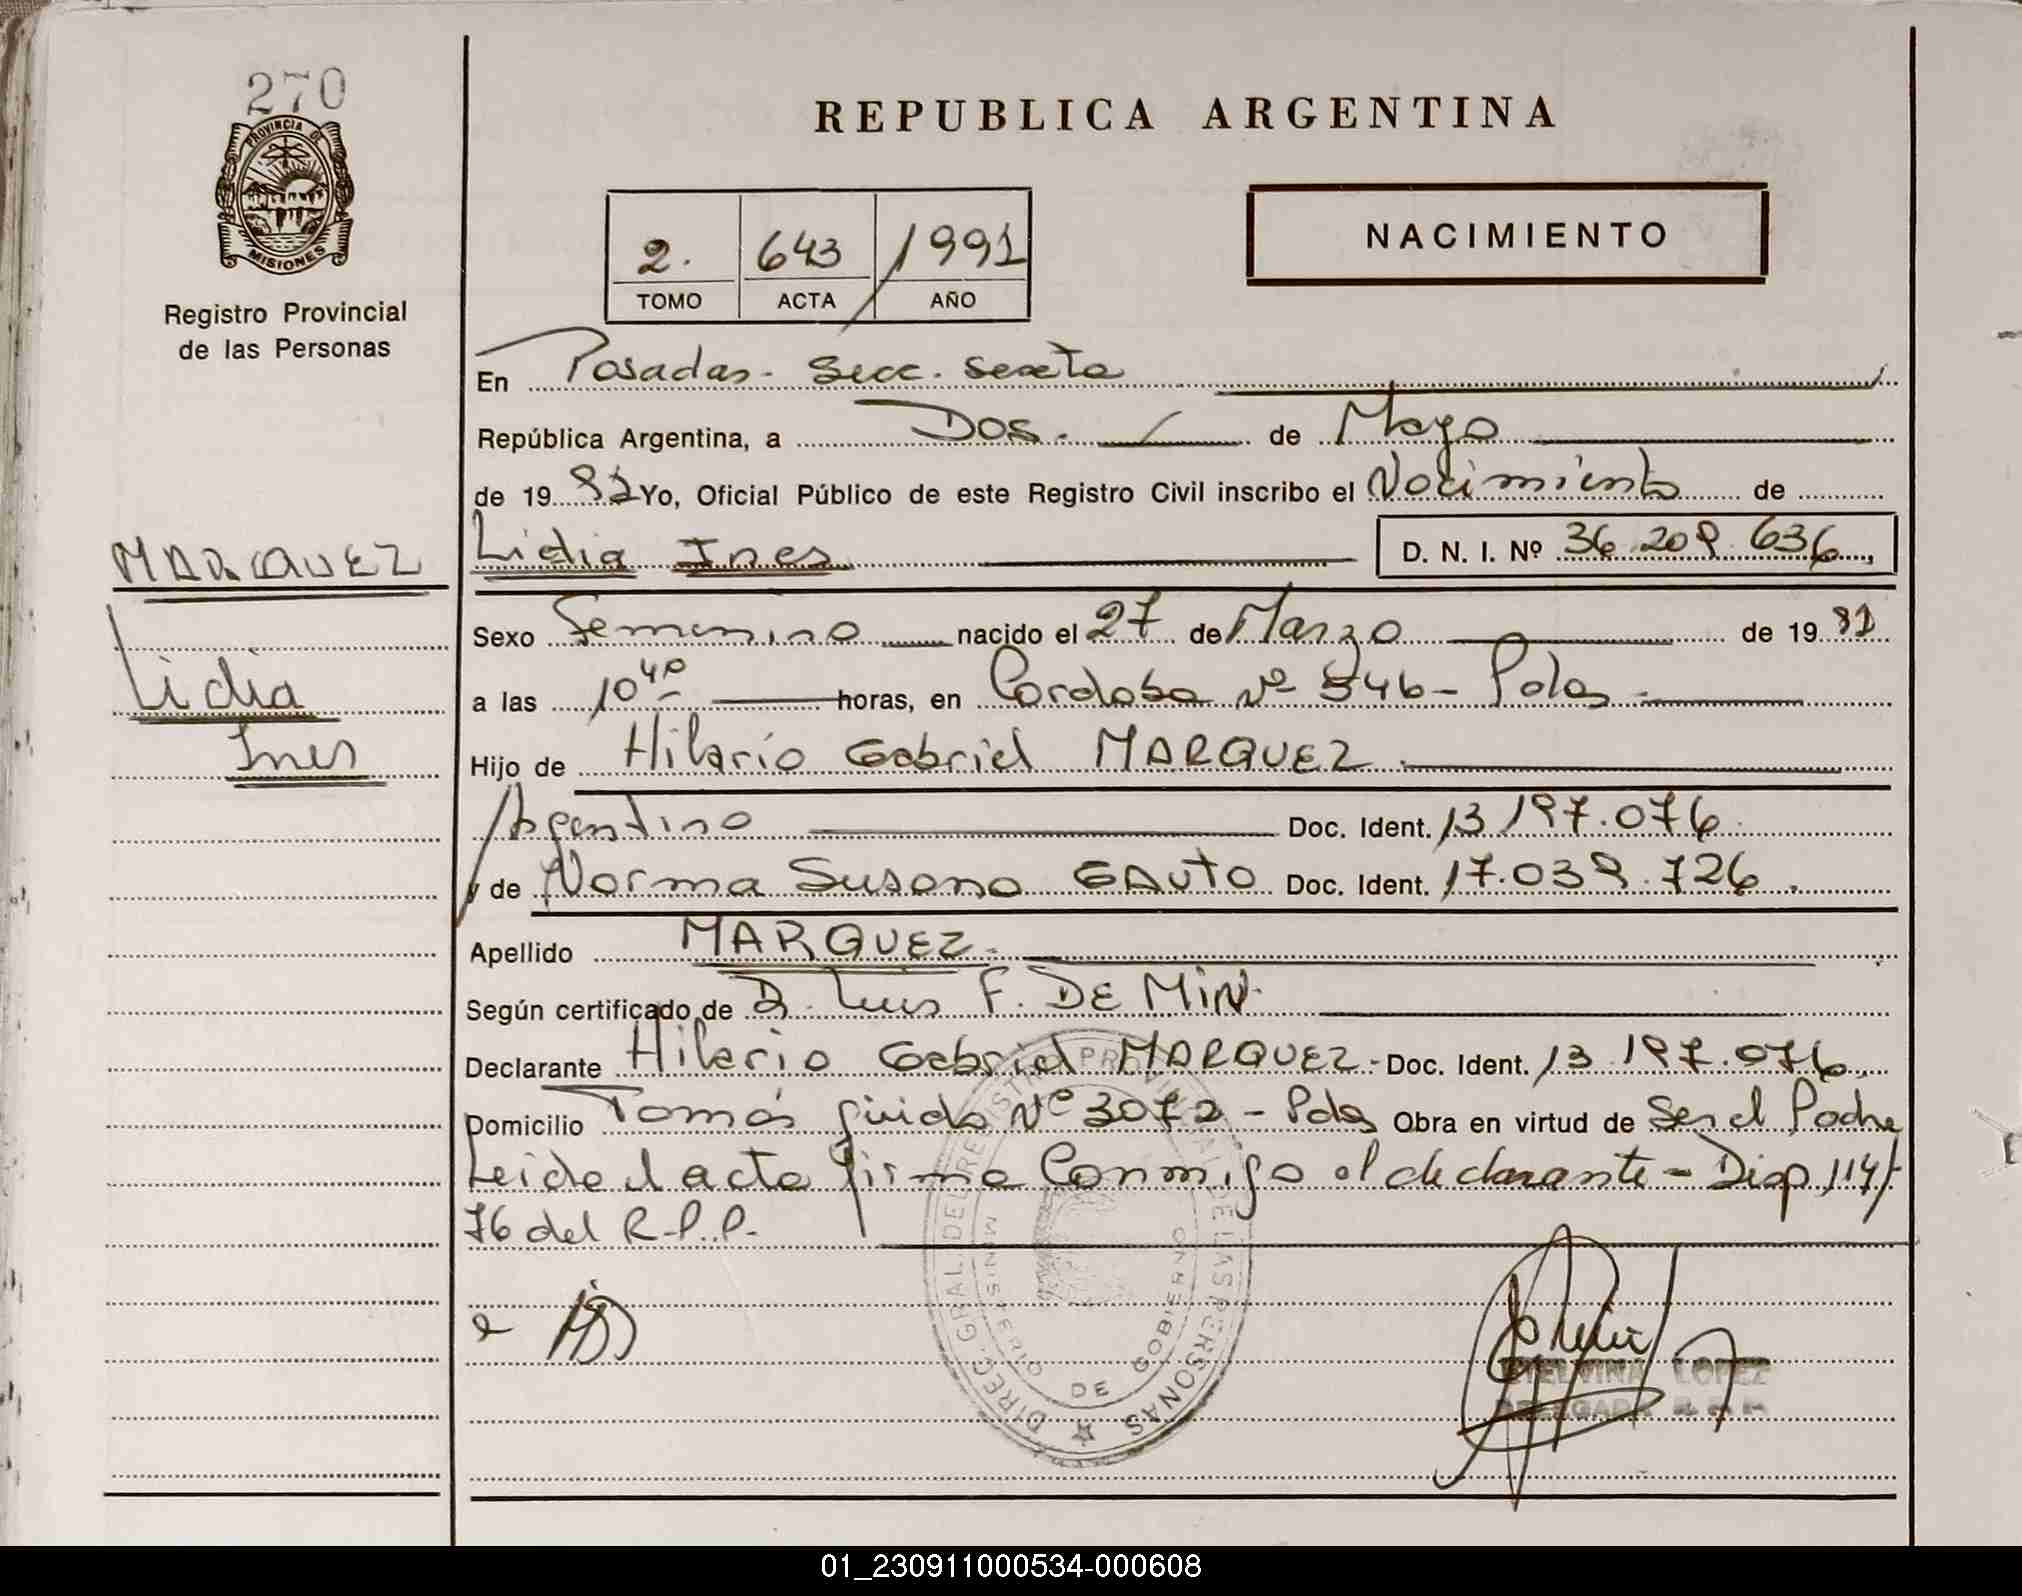 270
PROVINCIA DE
MISIONES
Registro Provincial
de las Personas
REPUBLICA ARGENTINA
NACIMIENTO
2. 643 1991
TOMO ACTA AÑO
En Posadas - Secc. Sexta
República Argentina, a Dos. de Mayo
de 19 91 Yo, Oficial Público de este Registro Civil inscribo el Nacimiento de
MARQUEZ
Lidia Ines D. N. I. Nº 36 209 636,
Lidia
Ines
Sexo Femenino nacido el 27 de Marzo de 19 91
a las 10 40 horas, en Cordoba Nº 946 - Pdas
Hijo de Hilario Gabriel MARQUEZ
Argentino Doc. Ident. 13 197.076
y de Norma Susana GAUTO Doc. Ident. 17.039.726
Apellido MARQUEZ
Según certificado de D. Luis F. DE MIN.
Declarante Hilario Gabriel MARQUEZ - Doc. Ident. 13 197.076,
Domicilio Tomás Guido Nº 3072 - Pdas Obra en virtud de Ser el Padre
Leida el acta firma Conmigo el declarante - Disp. 114/
76 del R.P.P.
DIREC. GRAL. DEL REGISTRO PROVINCIAL DE LAS PERSONAS
MINISTERIO DE GOBIERNO
ETELVINA LOPEZ
DELEGADA
01_230911000534-000608